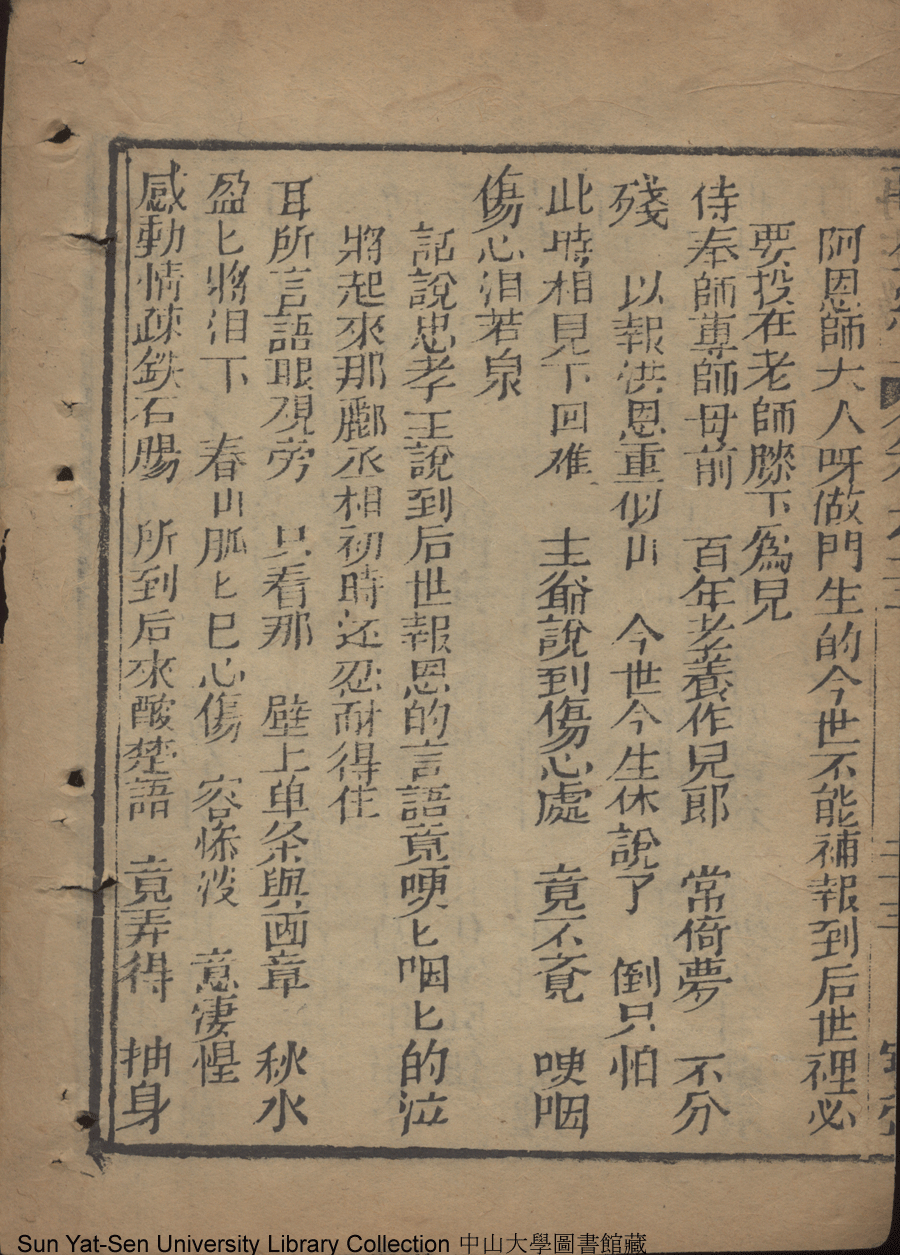 阿恩師大人呀做門生的今世不能補報到后世裡必
要投在老師膝下為兒
侍奉師專師母前　百年孝養作兒郎　常倚夢　不分
殘　以報洪恩重似山　今世今生休說了　倒只怕
此時相見下回难　主爺說到傷心處　竟不竟　哽咽
傷心泪若泉
話說忠孝王說到后世報恩的言語竟哽匕咽匕的泣
將起來那酈丞相初時还忍耐得住
耳所言語眼覌旁　只看那　壁上单条與画章　秋水
盈匕將泪下　春山胍匕巳心傷　容惨淡　意凄惶
感動情疎鉄石腸　所到后來酸楚語　竟弄得　抽身
二十三
Sun Yat-Sen University Library Collection 中山大學圖書館藏